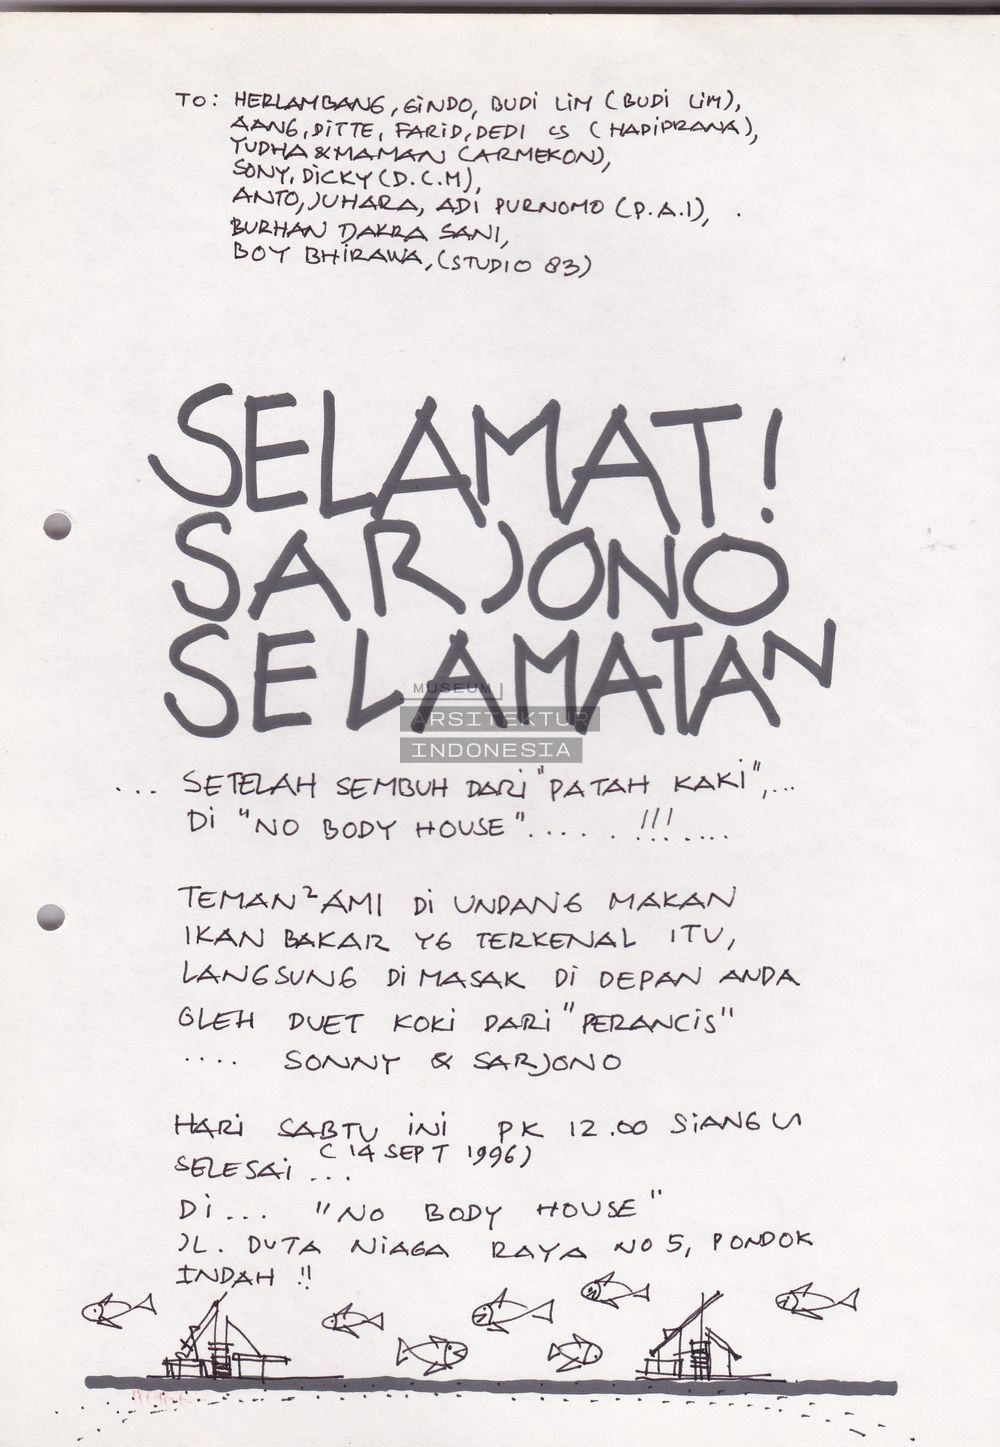 TO: HERLAMBANG, GINDO, BUDI LIM (BUDI LIM),
AANG, DITTE, FARID, DEDI CS (HADIPRANA),
YUDHA & MAMAN (ARMEKON),
SONY, DICKY (D.C.M),
ANTO, JUHARA, ADI PURNOMO (P.A.I),
BURHAN DAKRA SANI,
BOY BHIRAWA, (STUDIO 83)
SELAMAT!
SARJONO
SELAMATAN
MUSEUM
ARSITEKTUR
INDONESIA
... SETELAH SEMBUH DARI "PATAH KAKI",...
DI "NO BODY HOUSE"..... !!! ....
TEMAN² AMI DI UNDANG MAKAN
IKAN BAKAR YG TERKENAL ITU,
LANGSUNG DI MASAK DI DEPAN ANDA
OLEH DUET KOKI DARI "PERANCIS"
.... SONNY & SARJONO
HARI SABTU INI PK 12.00 SIANG
(14 SEPT 1996)
SELESAI ...
DI... "NO BODY HOUSE"
JL. DUTA NIAGA RAYA NO 5, PONDOK
INDAH !!